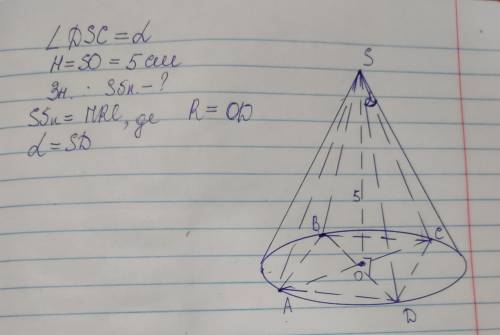 ∠DSC = α
H = SO = 5 см
Зн. Sбп. - ?
Sбп = ПRl, де R = OD
l = SD
S
α
5
B
C
O
A
D